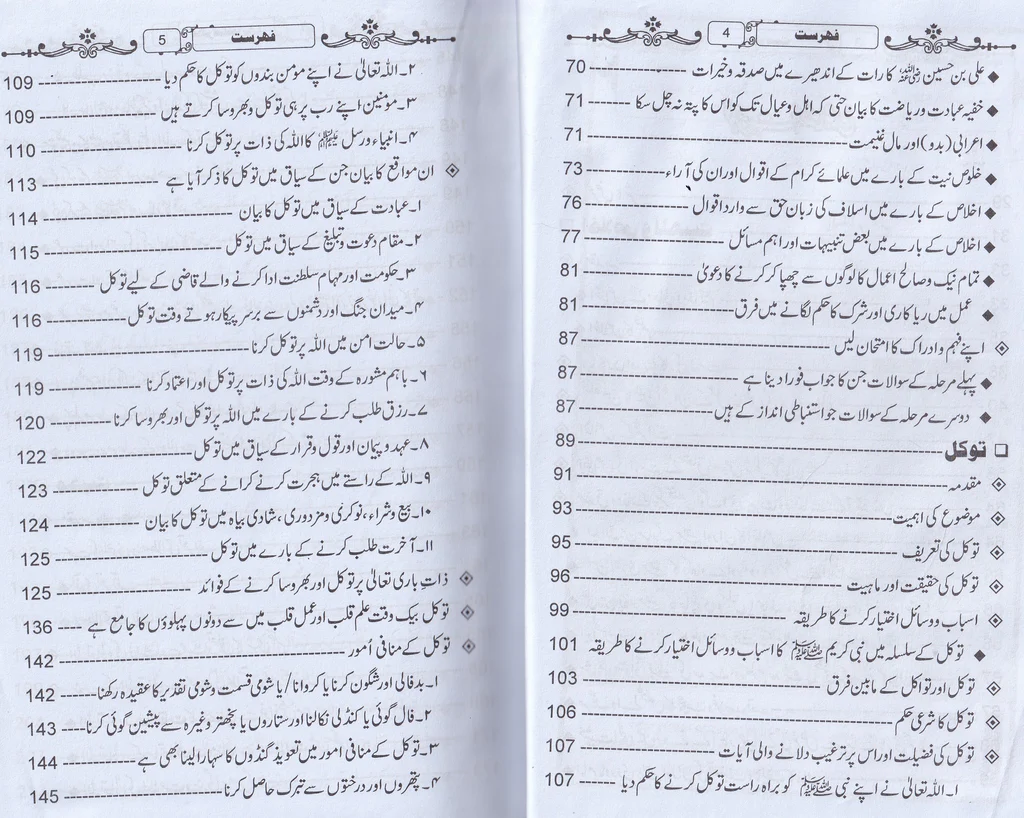 فہرست 4
◆ علی بن حسین رضی اللہ عنہ کا رات کے اندھیرے میں صدقہ وخیرات ---------- 70
◆ خفیہ عبادت وریاضت کا بیان حتی کہ اہل وعیال تک کو اس کا پتہ نہ چل سکا ---------- 71
◆ اعرابی (بدو) اور مال غنیمت ---------- 71
◆ خلوص نیت کے بارے میں علمائے کرام کے اقوال اور ان کی آراء ---------- 73
◆ اخلاص کے بارے میں اسلاف کی زبان حق سے وارد اقوال ---------- 76
◆ اخلاص کے بارے میں بعض تنبیہات اور اہم مسائل ---------- 77
◆ تمام نیک وصالح اعمال کا لوگوں سے چھپا کر کرنے کا دعویٰ ---------- 81
◆ عمل میں ریا کاری اور شرک کا حکم لگانے میں فرق ---------- 81
◈ اپنے فہم وادراک کا امتحان لیں ---------- 87
◆ پہلے مرحلہ کے سوالات جن کا جواب فوراً دینا ہے ---------- 87
◆ دوسرے مرحلہ کے سوالات جو استنباطی انداز کے ہیں ---------- 87
❑ توکل ---------- 89
◈ مقدمہ ---------- 91
◈ موضوع کی اہمیت ---------- 93
◈ توکل کی تعریف ---------- 95
◈ توکل کی حقیقت اور ماہیت ---------- 96
◈ اسباب ووسائل اختیار کرنے کا طریقہ ---------- 99
◆ توکل کے سلسلہ میں نبی کریم ﷺ کا اسباب ووسائل اختیار کرنے کا طریقہ 101
◈ توکل اور تواکل کے مابین فرق ---------- 103
◈ توکل کا شرعی حکم ---------- 106
◈ توکل کی فضیلت اور اس پر ترغیب دلانے والی آیات ---------- 107
۱۔ اللہ تعالیٰ نے اپنے نبی ﷺ کو براہ راست توکل کرنے کا حکم دیا ---------- 107
فہرست 5
۲۔ اللہ تعالیٰ نے اپنے مؤمن بندوں کو توکل کا حکم دیا ---------- 109
۳۔ مومنین اپنے رب پر ہی توکل وبھروسا کرتے ہیں ---------- 109
۴۔ انبیاء ورسل علیہم السلام کا اللہ کی ذات پر توکل کرنا ---------- 110
◈ ان مواقع کا بیان جن کے سیاق میں توکل کا ذکر آیا ہے ---------- 113
۱۔ عبادت کے سیاق میں توکل کا بیان ---------- 114
۲۔ مقام دعوت وتبلیغ کے سیاق میں توکل ---------- 115
۳۔ حکومت اور مہام سلطنت ادا کرنے والے قاضی کے لیے توکل ---------- 116
۴۔ میدان جنگ اور دشمنوں سے برسر پیکار ہوتے وقت توکل ---------- 116
۵۔ حالت امن میں اللہ پر توکل کرنا ---------- 119
۶۔ باہم مشورہ کے وقت اللہ کی ذات پر توکل اور اعتماد کرنا ---------- 119
۷۔ رزق طلب کرنے کے بارے میں اللہ پر توکل اور بھروسا کرنا ---------- 120
۸۔ عہد وپیمان اور قول وقرار کے سیاق میں توکل ---------- 122
۹۔ اللہ کے راستے میں ہجرت کرنے کرانے کے متعلق توکل ---------- 123
۱۰۔ بیع وشراء، نوکری ومزدوری، شادی بیاہ میں توکل کا بیان ---------- 124
۱۱۔ آخرت طلب کرنے کے بارے میں توکل ---------- 125
◈ ذاتِ باری تعالیٰ پر توکل اور بھروسا کرنے کے فوائد ---------- 125
◈ توکل بیک وقت علم قلب اور عمل قلب میں سے دونوں پہلوؤں کا جامع ہے ---- 136
◈ توکل کے منافی اُمور ---------- 142
۱۔ بدفالی اور شگون کرنا یا کروانا/ یا شومی قسمت وشومی تقدیر کا عقیدہ رکھنا ------ 142
۲۔ فال گوئی یا کنڈلی نکالنا اور ستاروں یا پنچھتر وغیرہ سے پیشین گوئی کرنا ---- 143
۳۔ توکل کے منافی امور میں تعویذ گنڈوں کا سہارا لینا بھی ہے ---------- 144
۴۔ پتھروں اور درختوں سے تبرک حاصل کرنا ---------- 145